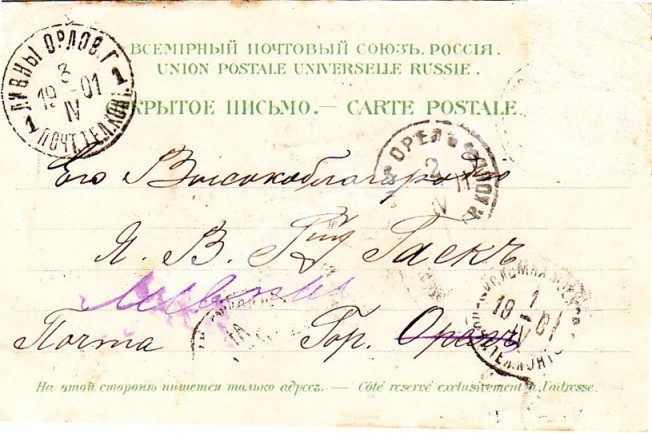 ВСЕМІРНЫЙ ПОЧТОВЫЙ СОЮЗЪ. РОССІЯ.
UNION POSTALE UNIVERSELLE RUSSIE.
ОТКРЫТОЕ ПИСЬМО. — CARTE POSTALE.
ЛИВНЫ ОРЛОВ. Г.
3
19 — 01
IV
1 ПОЧТ ТЕЛ КОН 1
ОРЕЛЪ
2
IV
Его Высокоблагородію
Я. В.
Ливны
1
19 — 01
IV
Почта Гор. Орелъ
На этой сторонѣ пишется только адресъ. — Côté réservé exclusivement à l'adresse.